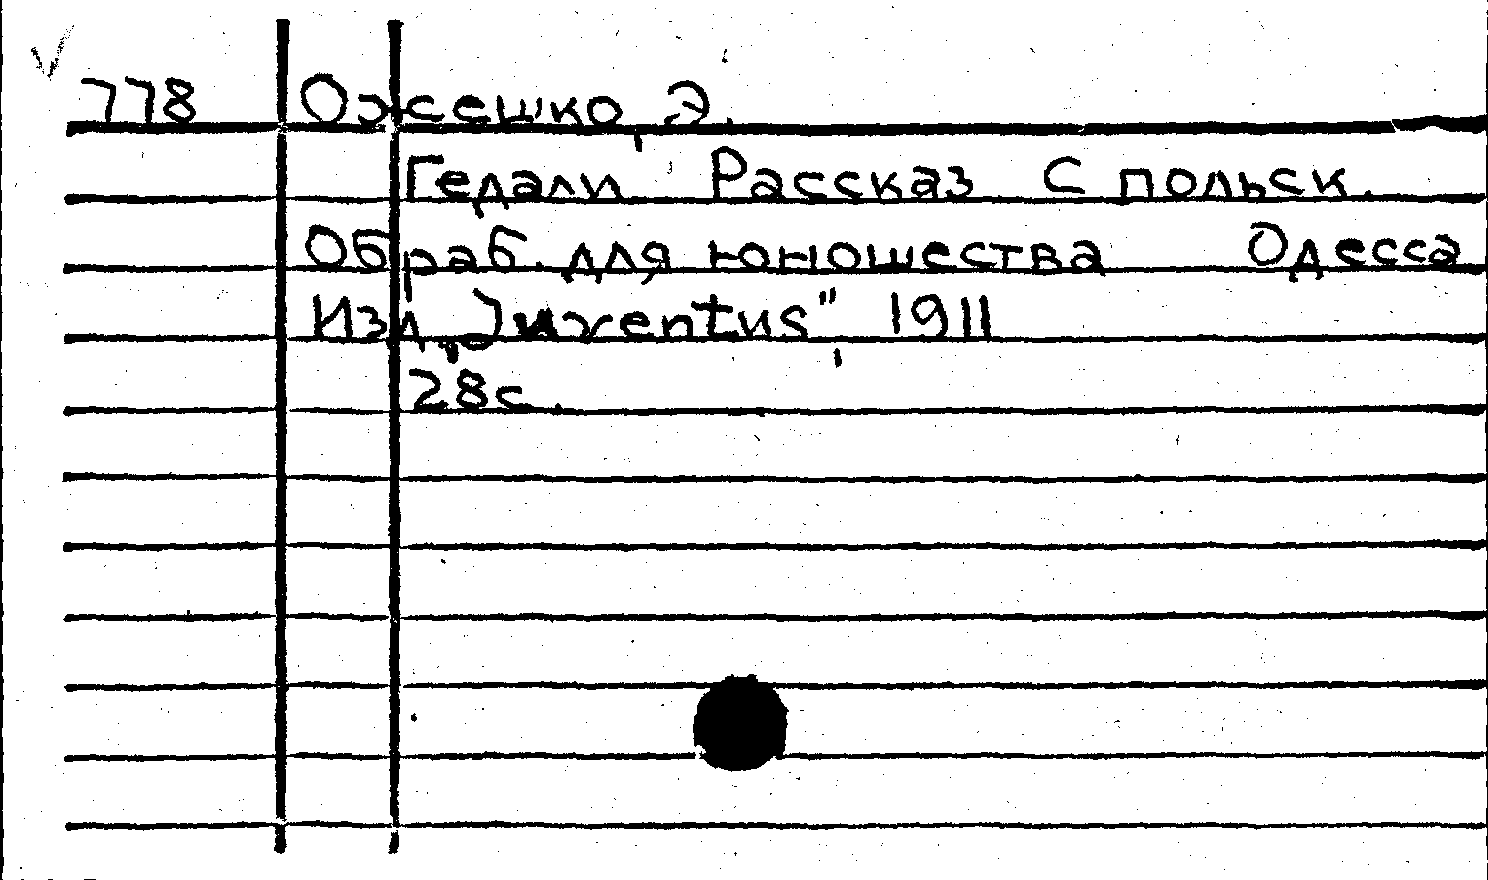 778 Ожешко, Э.
Гедали Рассказ С польск.
Обраб. для юношества Одесса
Изд. „Juventus", 1911
28с.